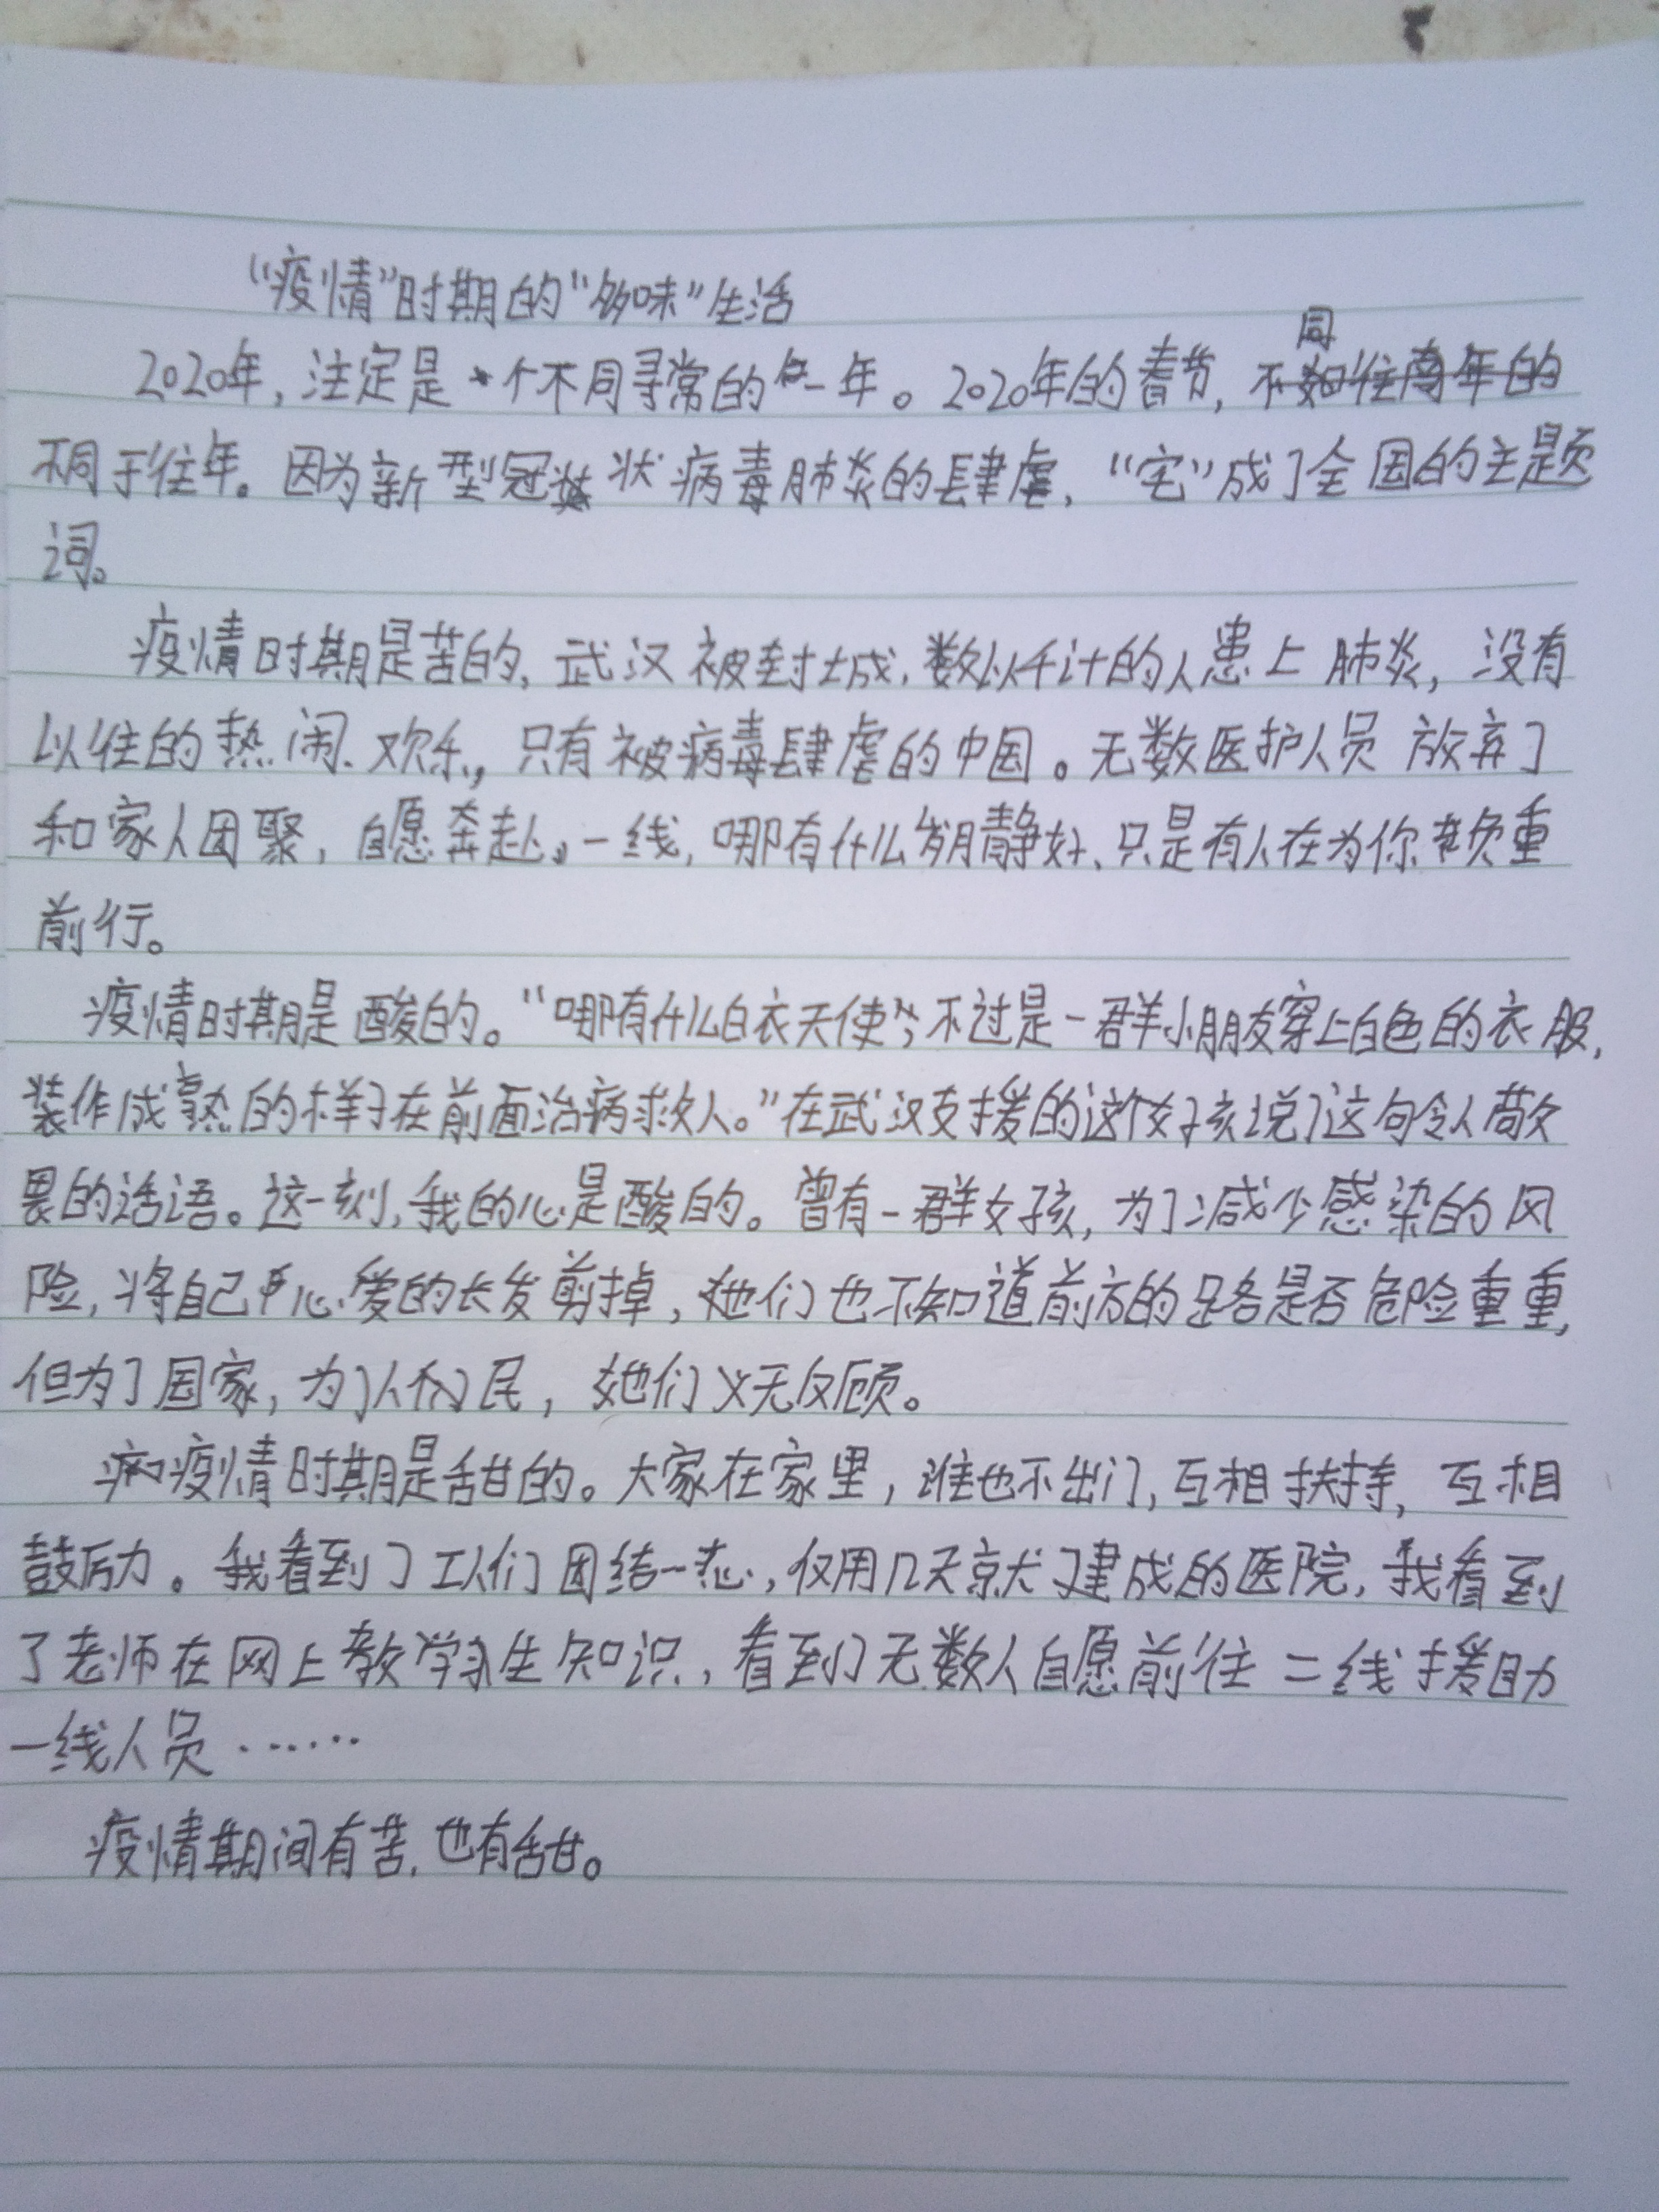 “疫情”时期的“多味”生活
2020年，注定是个不同寻常的一年。2020年的春节，
不同于往年。因为新型冠状病毒肺炎的肆虐，“宅”成了全国的主题
词。
疫情时期是苦的，武汉被封城，数以千计的人患上肺炎，没有
以往的热闹、欢乐，只有被病毒肆虐的中国。无数医护人员放弃了
和家人团聚，自愿奔赴一线，哪有什么岁月静好，只是有人在为你负重
前行。
疫情时期是酸的。“哪有什么白衣天使，不过是一群小朋友穿上白色的衣服，
装作成熟的样子在前面治病救人。”在武汉支援的这个女孩说了这句令人敬
畏的话语。这一刻，我的心是酸的。曾有一群女孩，为了减少感染的风
险，将自己心爱的长发剪掉，她们也不知道前方的路是否危险重重，
但为了国家，为了人民，她们义无反顾。
疫情时期是甜的。大家在家里，谁也不出门，互相扶持，互相
鼓励。我看到了工人们团结一志，仅用几天就建成的医院，我看到
了老师在网上教学生知识，看到了无数人自愿前往二线援助
一线人员……
疫情期间有苦，也有甜。